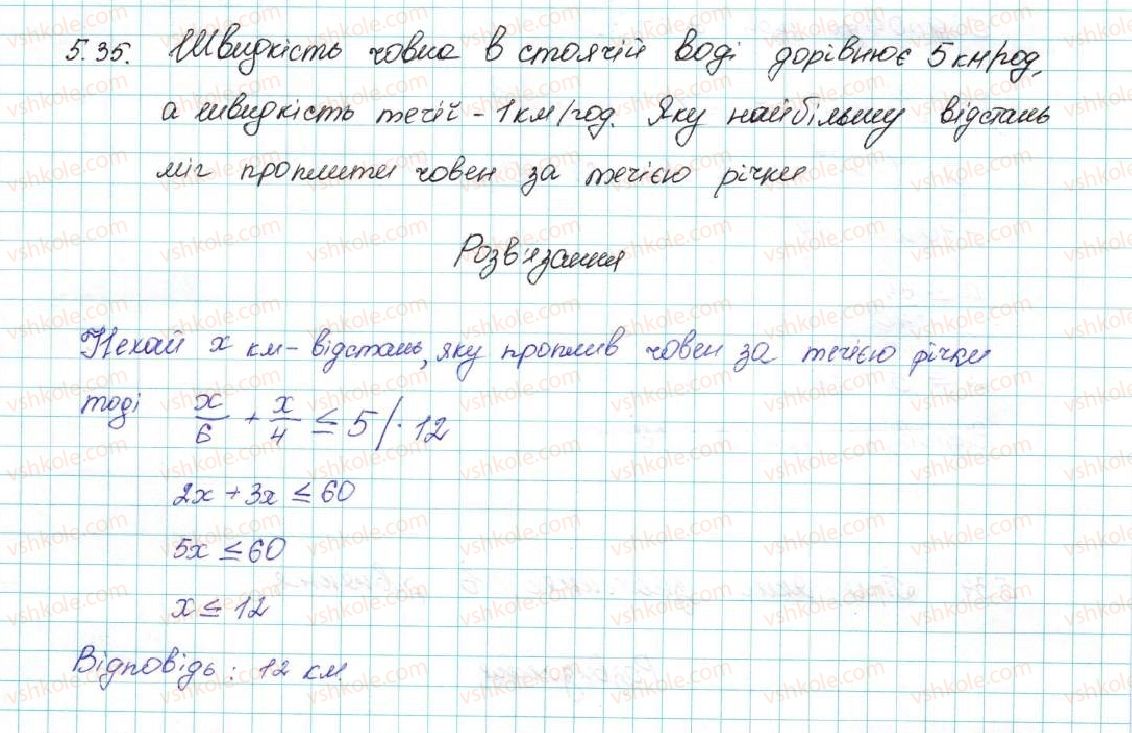 5.35. Швидкість човна в стоячій воді дорівнює 5 км/год,
а швидкість течії - 1 км/год. Яку найбільшу відстань
міг проплити човен за течією річки
Розв'язання
Нехай x км - відстань, яку проплив човен за течією річки
тоді x/6 + x/4 ≤ 5 /· 12
2x + 3x ≤ 60
5x ≤ 60
x ≤ 12
Відповідь: 12 км.